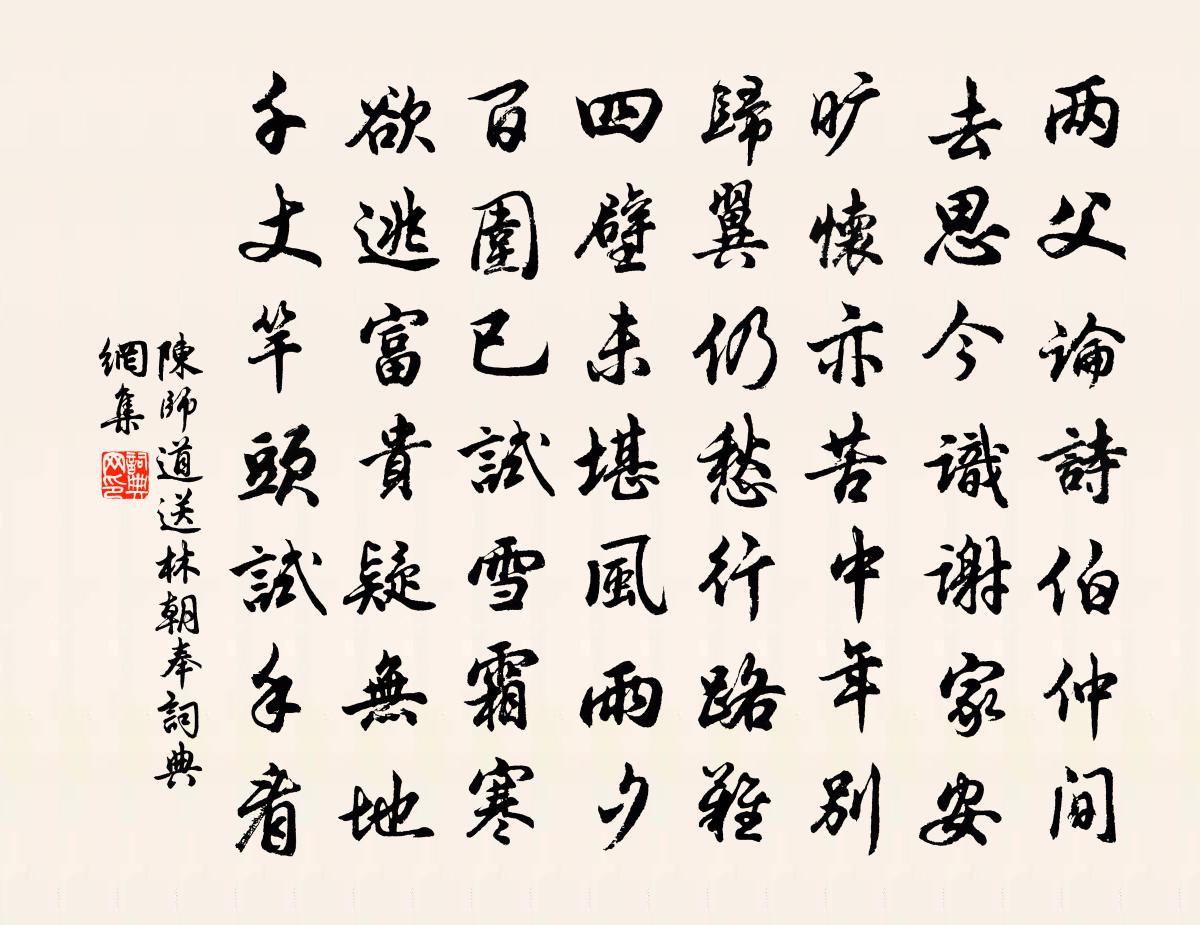 两父論詩伯仲間
去思今識谢家安
旷懷亦苦中年別
歸翼仍愁行路難
四壁未堪風雨夕
百圍已試雪霜寒
欲逃富貴疑無地
千丈竿頭試手看
陳師道送林朝奉詞典
網集
詞典网印